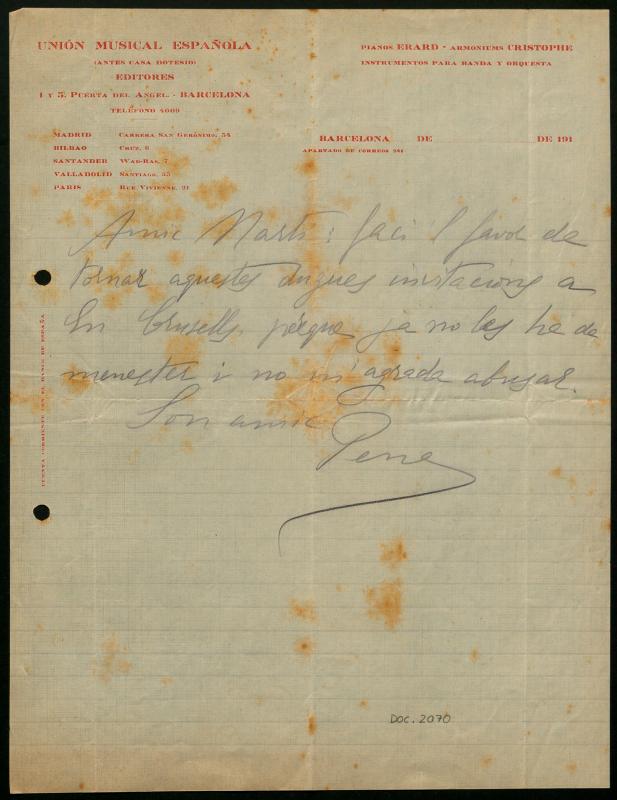 UNIÓN MUSICAL ESPAÑOLA
(ANTES CASA DOTESIO)
EDITORES
1 Y 3, PUERTA DEL ANGEL. - BARCELONA
TELÉFONO 4009
PIANOS ERARD - ARMONIUMS CRISTOPHE
INSTRUMENTOS PARA BANDA Y ORQUESTA
MADRID CARRERA SAN GERÓNIMO, 34
BILBAO CRUZ, 6
SANTANDER WAD-RAS, 7
VALLADOLID SANTIAGO,
PARIS RUE VIVIENNE, 21
BARCELONA DE DE 191
APARTADO DE CORREOS 261
CUENTA CORRIENTE CON EL BANCO DE ESPAÑA
Amic Martí: faci l favor de
tornar aquestes dugues invitacions a
En Crusells, pérque ja no las he de
menester i no m'agrada abusar.
Son amic
Pena
DOC. 2070